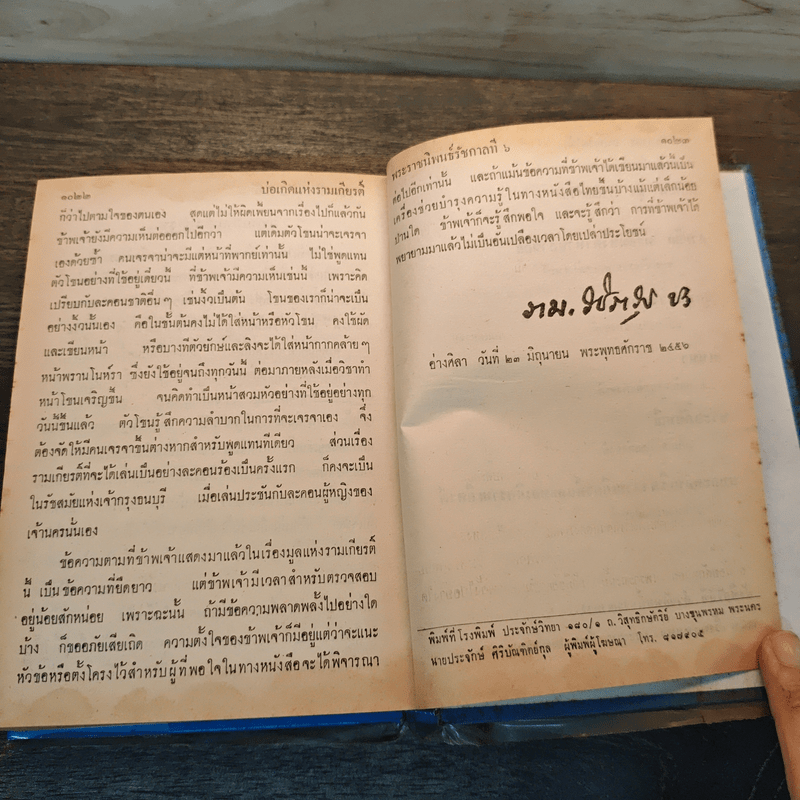 ๑๐๒๒ บ่อเกิดแห่งรามเกียรติ์
ที่ว่าไปตามใจของตนเอง สุดแต่ไม่ให้ผิดเพี้ยนจากเรื่องไปก็แล้วกัน
ข้าพเจ้ายังมีความเห็นต่อออกไปอีกว่า แต่เดิมตัวโขนน่าจะเจรจา
เองด้วยซ้ำ คนเจรจาน่าจะมีแต่หน้าที่พากย์เท่านั้น ไม่ใช่พูดแทน
ตัวโขนอย่างที่ใช้อยู่เดี๋ยวนี้ ที่ข้าพเจ้ามีความเห็นเช่นนี้ เพราะคิด
เปรียบกับละคอนชาติอื่น ๆ เช่นงิ้วเป็นต้น โขนของเราก็น่าจะเป็น
อย่างงิ้วนั้นเอง คือในชั้นต้นคงไม่ได้ใส่หน้าหรือหัวโขน คงใช้ผัด
และเขียนหน้า หรือบางทีตัวยักษ์และลิงจะได้ใส่หน้ากากคล้าย ๆ
หน้าพรานโนห์รา ซึ่งยังใช้อยู่จนถึงทุกวันนี้ ต่อมาภายหลังเมื่อวิชาทำ
หน้าโขนเจริญขึ้น จนคิดทำเป็นหน้าสวมหัวอย่างที่ใช้อยู่อย่างทุก
วันนี้ขึ้นแล้ว ตัวโขนรู้สึกความลำบากในการที่จะเจรจาเอง จึ่ง
ต้องจัดให้มีคนเจรจาขึ้นต่างหากสำหรับพูดแทนทีเดียว ส่วนเรื่อง
รามเกียรติ์ที่จะได้เล่นเป็นอย่างละคอนร้องเป็นครั้งแรก ก็คงจะเป็น
ในรัชสมัยแห่งเจ้ากรุงธนบุรี เมื่อเล่นประชันกับละคอนผู้หญิงของ
เจ้านครนั้นเอง
ข้อความตามที่ข้าพเจ้าแสดงมาแล้วในเรื่องมูลแห่งรามเกียรติ์
นี้ เป็นข้อความที่ยืดยาว แต่ข้าพเจ้ามีเวลาสำหรับตรวจสอบ
อยู่น้อยสักหน่อย เพราะฉะนั้น ถ้ามีข้อความพลาดพลั้งไปอย่างใด
บ้าง ก็ขออภัยเสียเถิด ความตั้งใจของข้าพเจ้าก็มีอยู่แต่ว่าจะแนะ
หัวข้อหรือตั้งโครงไว้สำหรับผู้ที่พอใจในทางหนังสือจะได้พิจารณา
พระราชนิพนธ์รัชกาลที่ ๖ ๑๐๒๓
ต่อไปอีกเท่านั้น และถ้าแม้นข้อความที่ข้าพเจ้าได้เขียนมาแล้วนี้เป็น
เครื่องช่วยบำรุงความรู้ในทางหนังสือไทยขึ้นบ้างแม้แต่เล็กน้อย
ปานใด ข้าพเจ้าก็จะรู้สึกพอใจ และจะรู้สึกว่า การที่ข้าพเจ้าได้
พยายามมาแล้วไม่เป็นอันเปลืองเวลาโดยเปล่าประโยชน์
อ่างศิลา วันที่ ๒๓ มิถุนายน พระพุทธศักราช ๒๔๕๖
พิมพ์ที่โรงพิมพ์ ประจักษ์วิทยา ๑๘๐/๑ ถ. วิสุทธิกษัตริย์ บางขุนพรหม พระนคร
นายประจักษ์ ศิริบัณฑิตย์กุล ผู้พิมพ์ผู้โฆษณา โทร. ๘๑๗๔๐๕